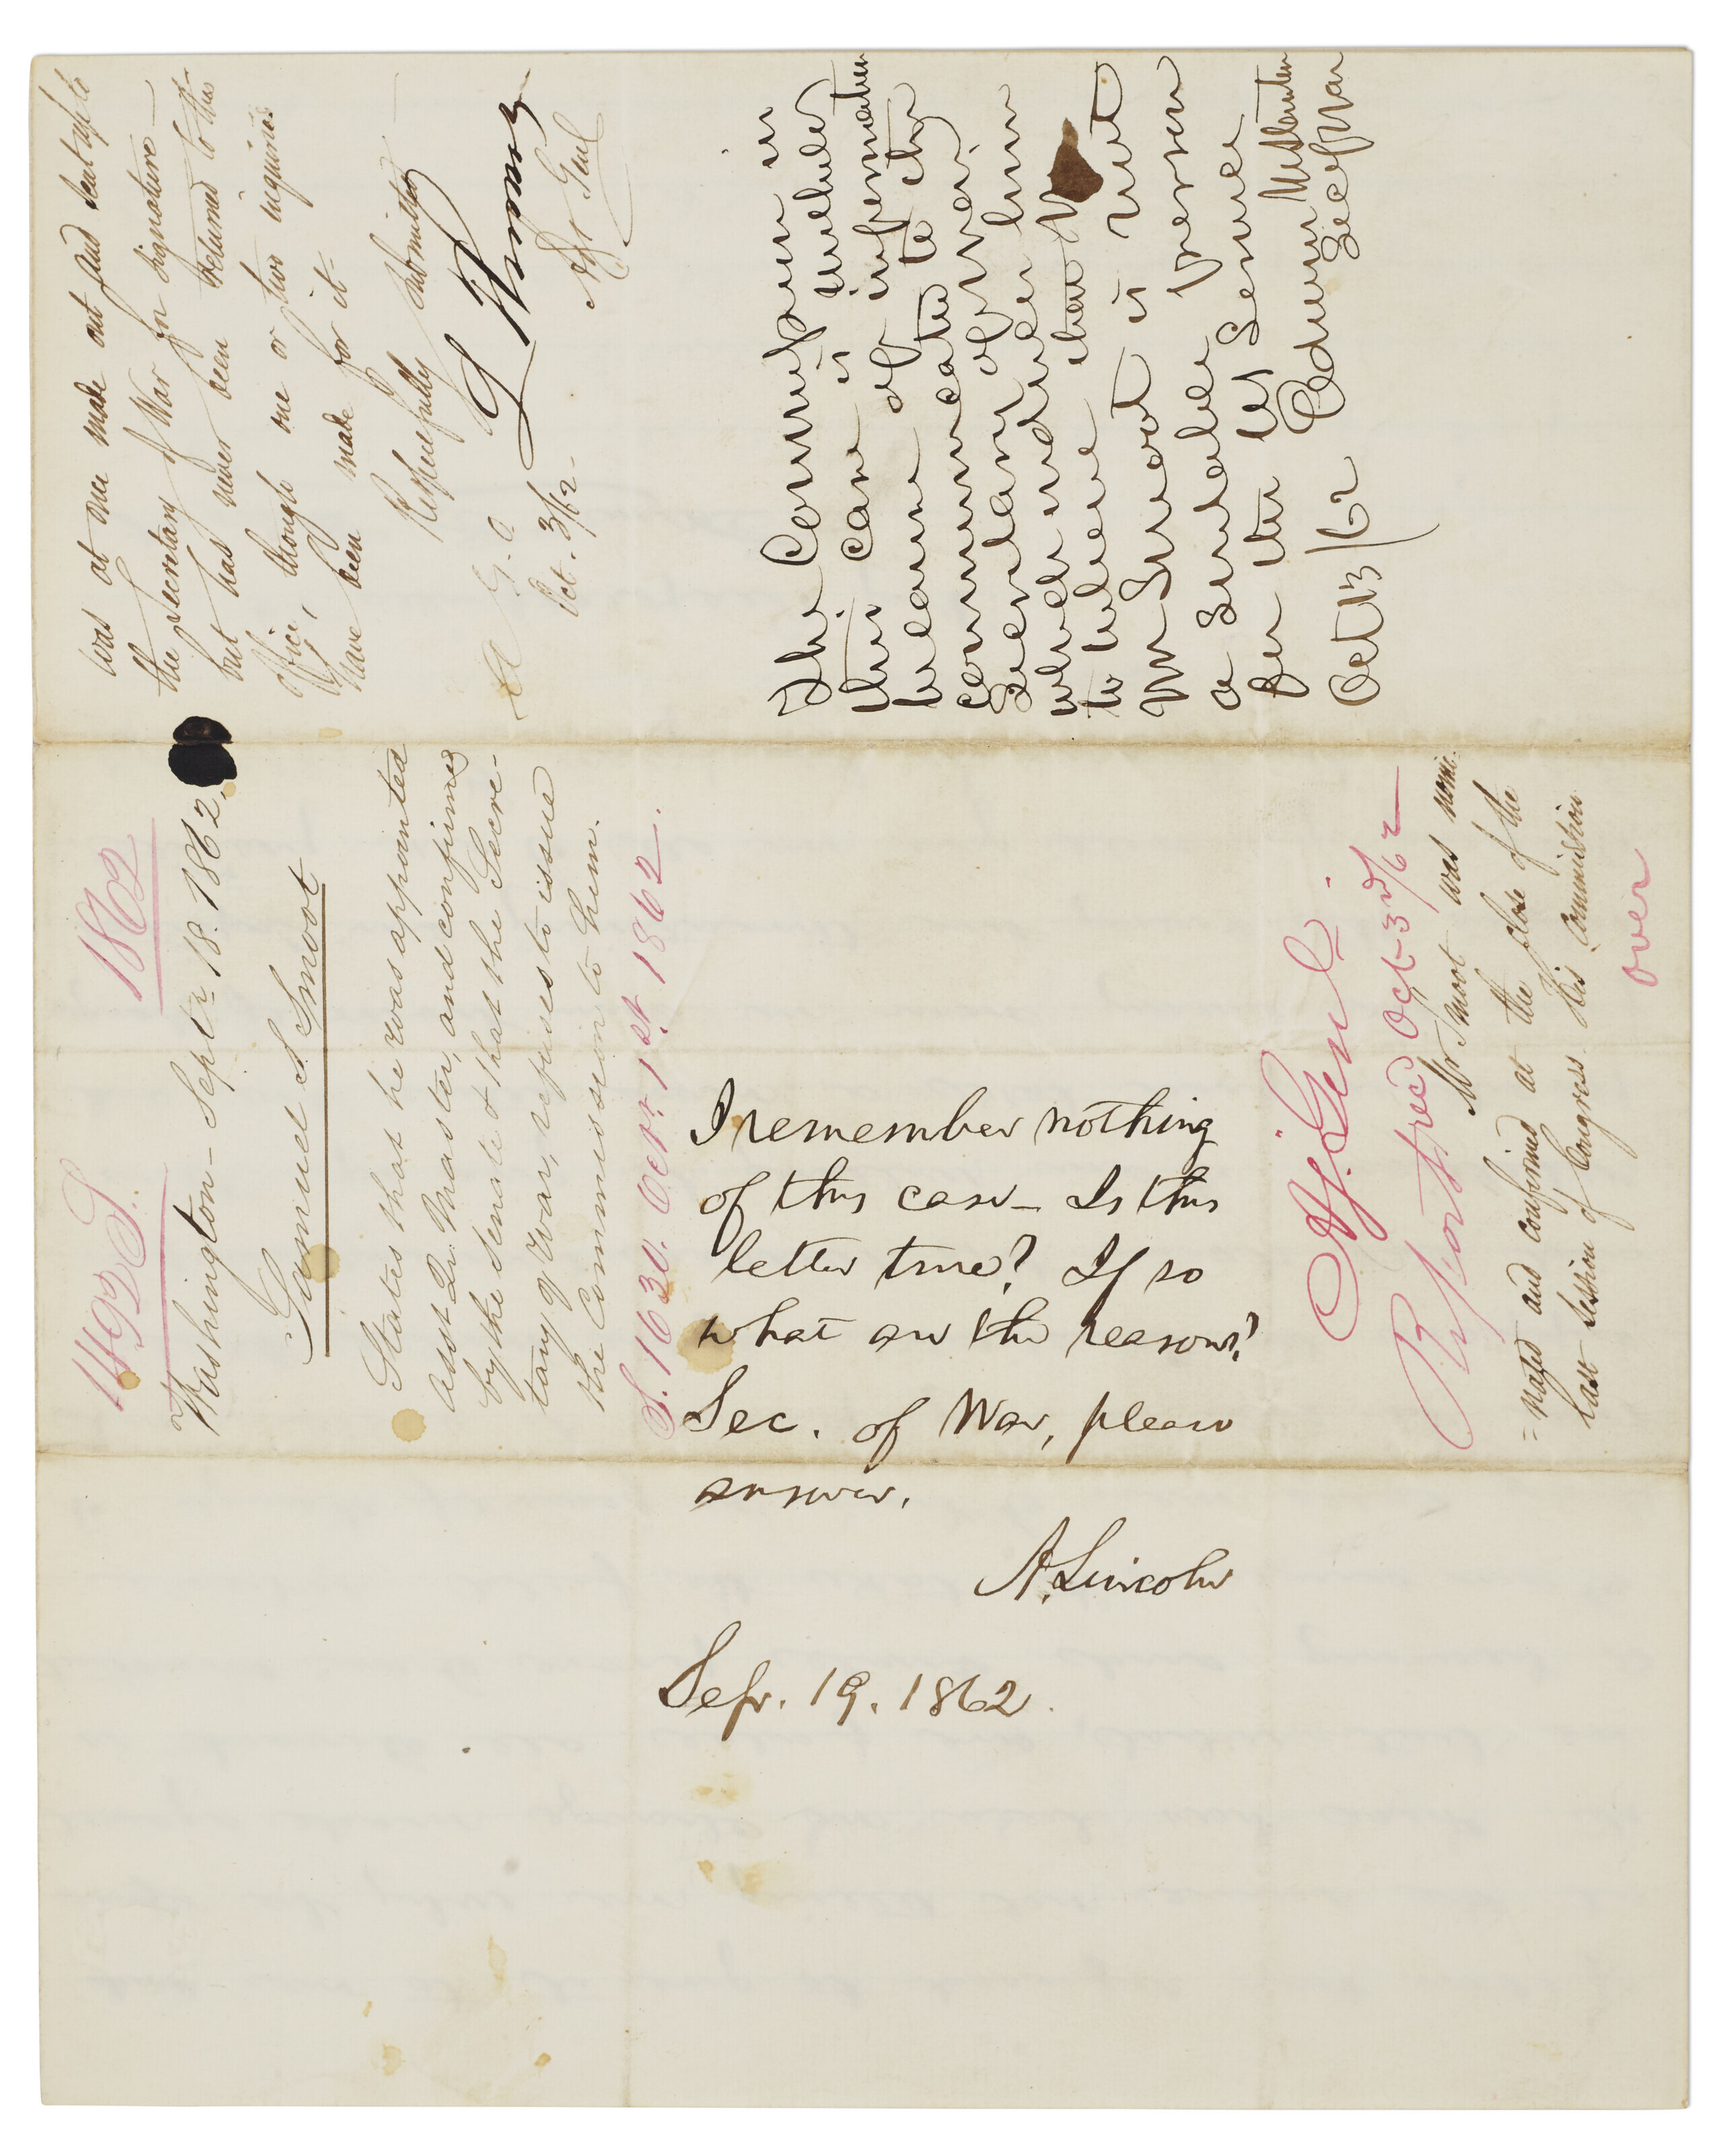 1492 S. 1862
Washington - Septr. 18. 1862.
Samuel S. Smoot
States that he was appointed
Asst Qr. Master, and confirmed
by the Senate & that the Secre-
tary of War, refuses to issue
the Commission to him.
S. 1630. Octr. 1st 1862.
I remember nothing
of this case — Is this
letter true? If so
what are the reasons?
Sec. of War, please
answer.
A. Lincoln
Sep. 19. 1862.
Adj. Genl.
Report recd Oct 3rd/62
Mr Smoot was nomi-
=nated and confirmed at the close of the
last session of Congress. His Commission
over
was at once made out and sent up to
the Secretary of War for signature—
but has never been returned to this
Office, though one or two inquiries
have been made for it—
Respectfully submitted
L Thomas
Adjt Genl
A. G. O.
Oct. 3/62
The Commission in
this case is withheld
because of information
communicated to the
Secretary of War
which induces him
to believe that
Mr Smoot is not
a suitable person
for the Service
Edwin M Stanton
Oct 13/62 Sec of War